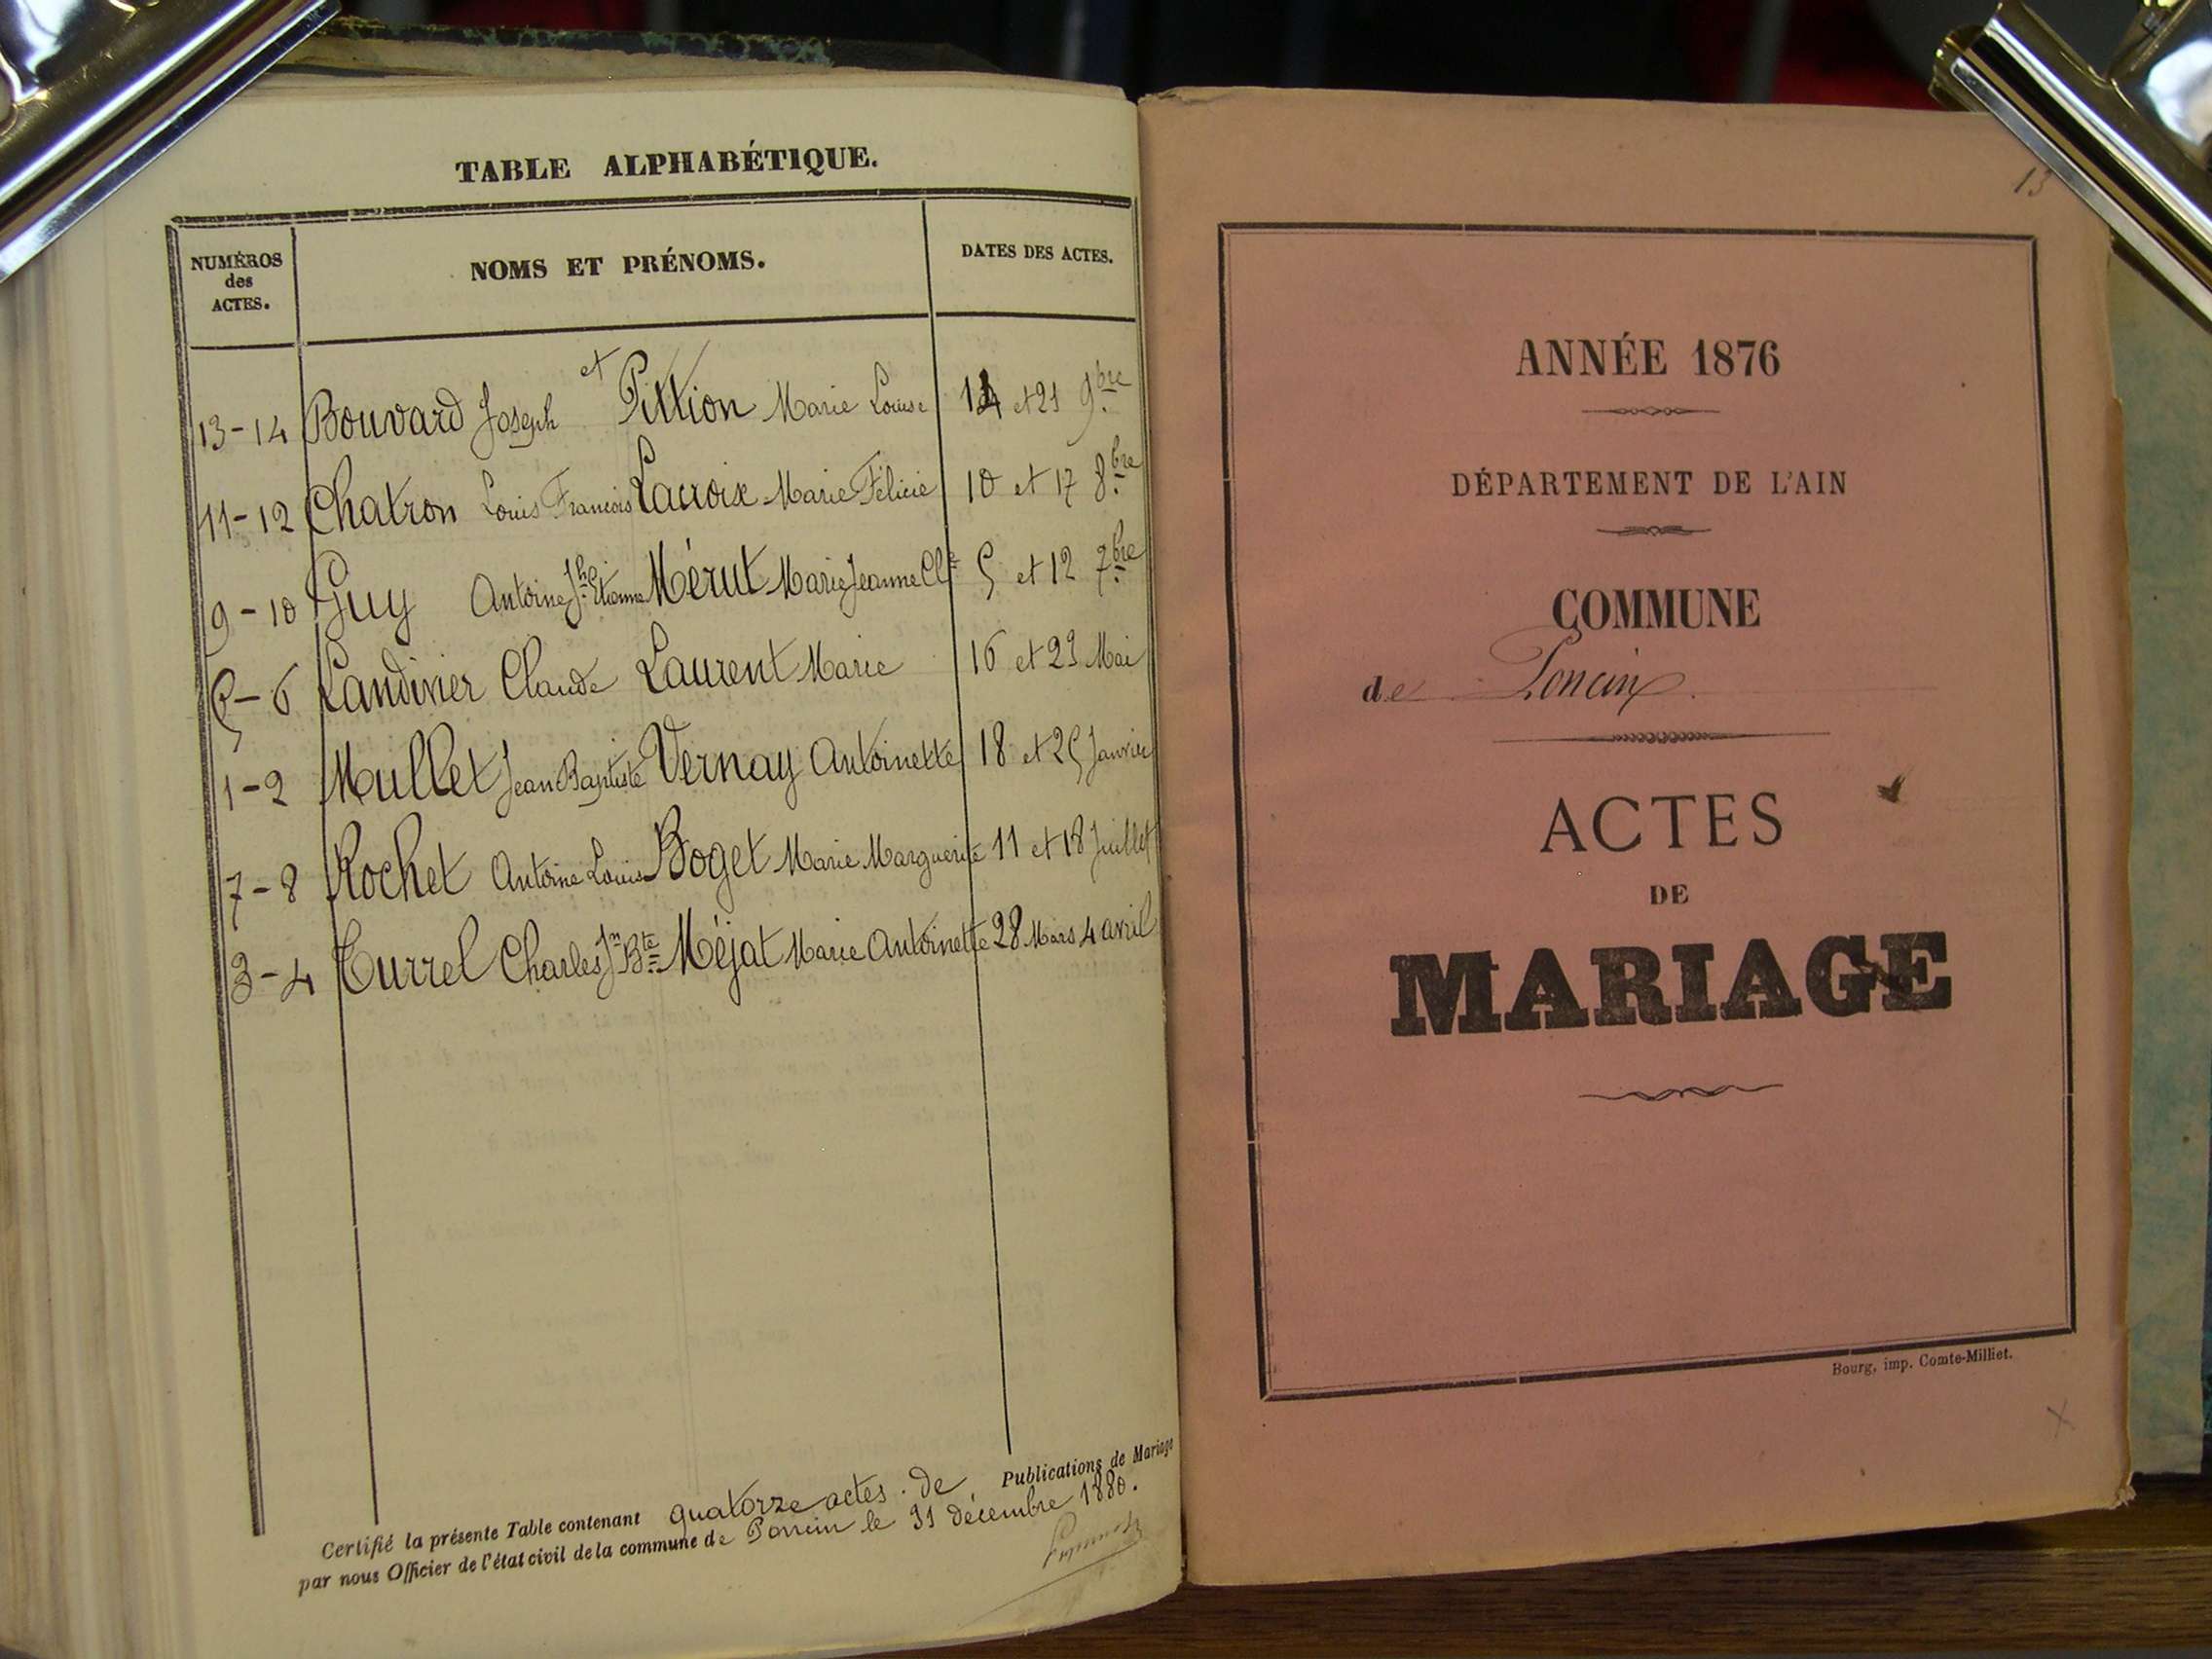 TABLE ALPHABÉTIQUE.
NUMÉROS des ACTES. NOMS ET PRÉNOMS. DATES DES ACTES.
13-14 Bouvard Joseph et Pittion Marie Louise 14 et 21 9bre
11-12 Chatron Louis François Lacroix Marie Félicie 10 et 17 8bre
9-10 Guy Antoine Jh Etienne Mérut Marie Jeanne Cl 5 et 12 7bre
5-6 Landivier Claude Laurent Marie 16 et 23 Mai
1-2 Mullet Jean Baptiste Vernay Antoinette 18 et 25 Janvier
7-8 Rochet Antoine Louis Boget Marie Marguerite 11 et 18 Juillet
3-4 Turrel Charles Jn Bte Méjat Marie Antoinette 28 Mars 4 avril
Certifié la présente Table contenant quatorze actes de Publications de Mariage
par nous Officier de l'état civil de la commune de Poncin le 31 décembre 1880.
13
ANNÉE 1876
DÉPARTEMENT DE L'AIN
COMMUNE
de Poncin
ACTES
DE
MARIAGE
Bourg, imp. Comte-Milliet.